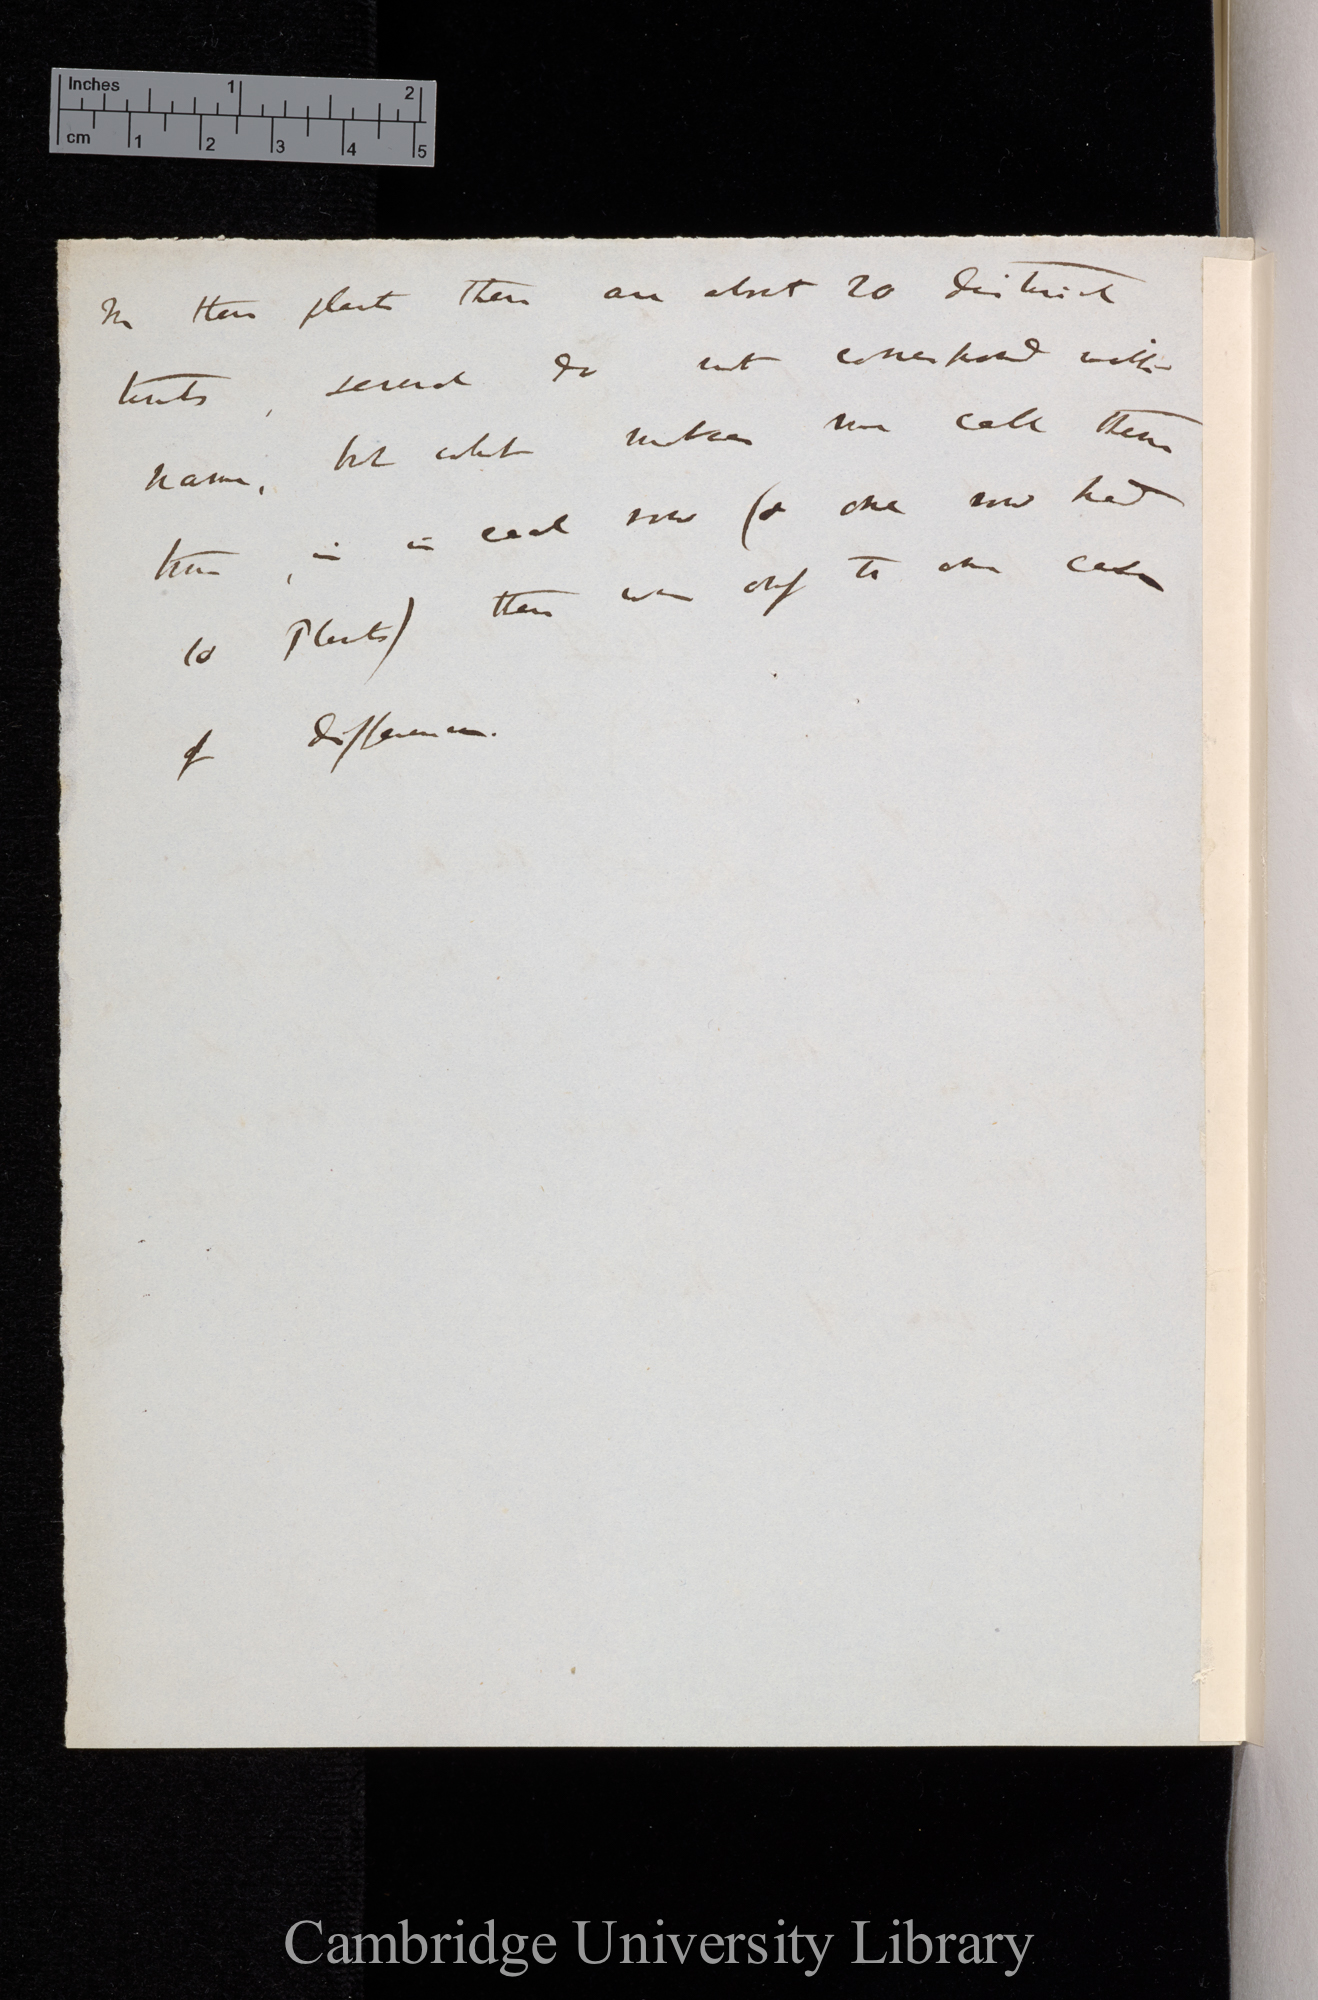 Inches 1 2
cm 1 2 3 4 5
In these plants there are about 20 distinct
tints, several do not correspond with
name, but what makes me call them
true, is in each row (& one row had
10 Plants) there was only to one case
of difference.
Cambridge University Library